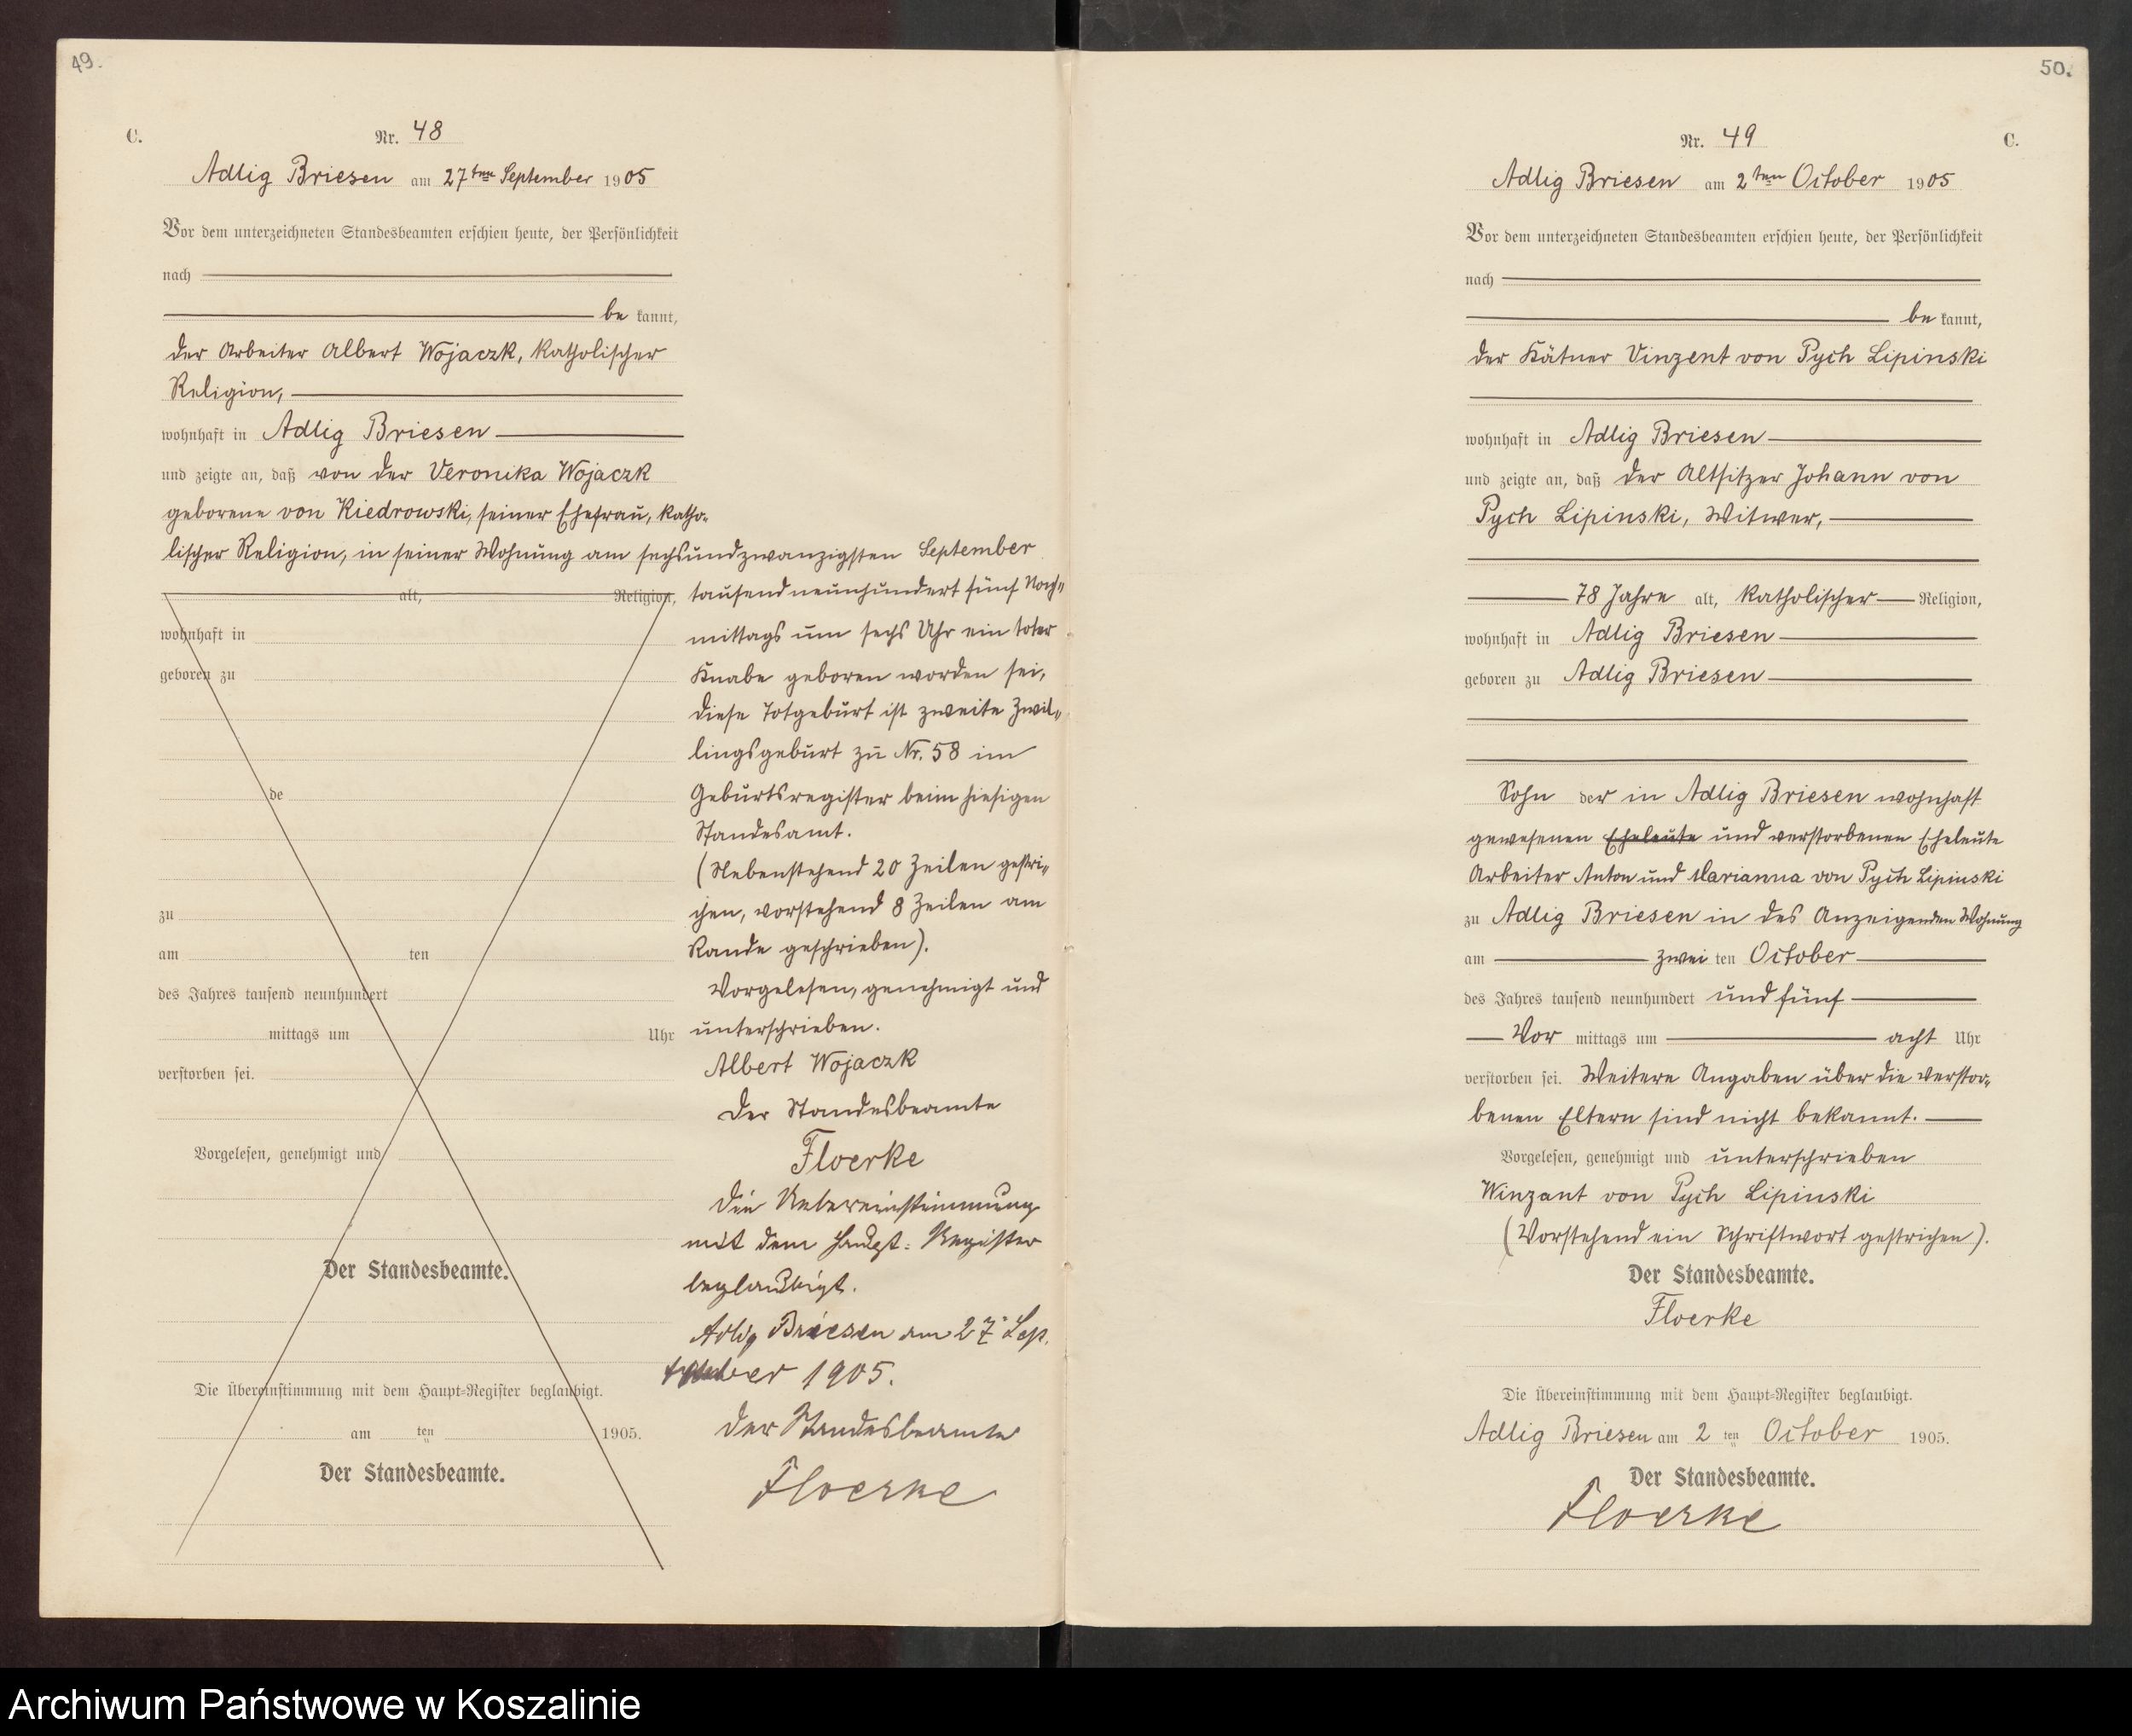 49.
C.
Nr. 48
Adlig Briesen am 27ten September 1905
Vor dem unterzeichneten Standesbeamten erschien heute, der Persönlichkeit
nach
be kannt,
der Arbeiter Albert Wojaczk, katholischer
Religion,
wohnhaft in Adlig Briesen
und zeigte an, daß von der Veronika Wojaczk
geborene von Kiedrowski, seiner Ehefrau, katho-
lischer Religion, in seiner Wohnung am sechsundzwanzigsten September
alt, Religion,
tausendneunhundert fünf Nach-
wohnhaft in
mittags um sechs Uhr ein toter
geboren zu
Knabe geboren worden sei,
diese Totgeburt ist zweite Zwil-
lingsgeburt zu Nr. 58 im
de
Geburtsregister beim hiesigen
Standesamt.
(Nebenstehend 20 Zeilen gestri-
zu
chen, vorstehend 8 Zeilen am
am ten
Rande geschrieben).
des Jahres tausend neunhundert
Vorgelesen, genehmigt und
mittags um Uhr
unterschrieben.
verstorben sei.
Albert Wojaczk
Der Standesbeamte
Vorgelesen, genehmigt und
Floerke
Die Uebereinstimmung
mit dem Haupt-Register
Der Standesbeamte.
beglaubigt.
Adlig Briesen am 27. Sep.
tember 1905.
Die Übereinstimmung mit dem Haupt-Register beglaubigt.
am ten 1905.
Der Standesbeamte
Der Standesbeamte.
Floerke
50.
Nr. 49
C.
Adlig Briesen am 2ten October 1905
Vor dem unterzeichneten Standesbeamten erschien heute, der Persönlichkeit
nach
be kannt,
der Kätner Vinzent von Pych Lipinski
wohnhaft in Adlig Briesen
und zeigte an, daß der Altsitzer Johann von
Pych Lipinski, Witwer,
78 Jahre alt, katholischer Religion,
wohnhaft in Adlig Briesen
geboren zu Adlig Briesen
Sohn der in Adlig Briesen wohnhaft
gewesenen Eheleute und verstorbenen Eheleute
Arbeiter Anton und Marianna von Pych Lipinski
zu Adlig Briesen in des Anzeigenden Wohnung
am zwei ten October
des Jahres tausend neunhundert und fünf
Vor mittags um acht Uhr
verstorben sei. Weitere Angaben über die verstor-
benen Eltern sind nicht bekannt.
Vorgelesen, genehmigt und unterschrieben
Winzant von Pych Lipinski
(Vorstehend ein Schriftwort gestrichen).
Der Standesbeamte.
Floerke
Die Übereinstimmung mit dem Haupt-Register beglaubigt.
Adlig Briesen am 2 ten October 1905.
Der Standesbeamte.
Floerke
Archiwum Państwowe w Koszalinie